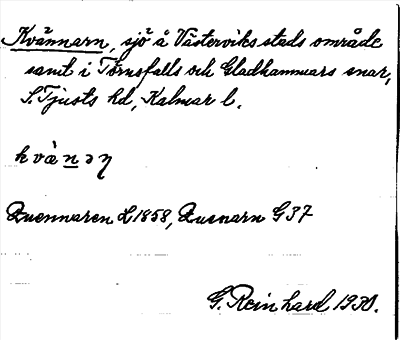 Kvännarn, sjö å Västerviks stads område
samt i Törnsfalls och Gladhammars snar,
S. Tjusts hd, Kalmar l.
kvὰnəƞ
Quennaren L 1858, Qusnarn G 37
G. Reinhard 1930.